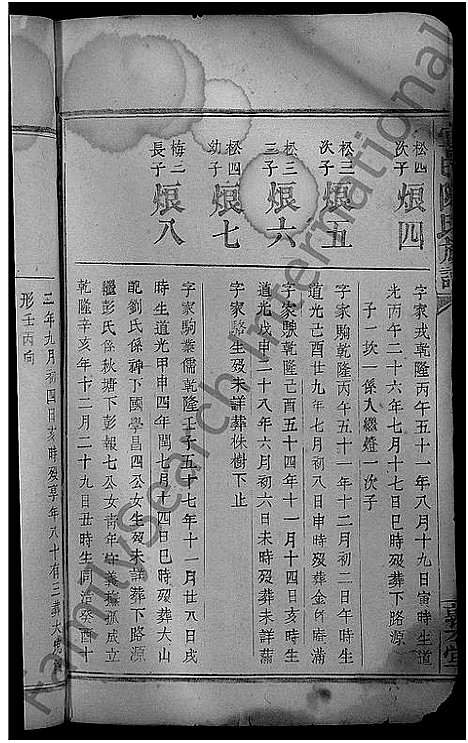 松四
次子
烺四
字家戎乾隆丙午五十一年八月十九日寅時生道
光丙午二十六年七月十七日巳時歿葬下路源
子一次一係入繼燈一次子
松三
次子
烺五
字家駒乾隆丙午五十一年十二月初二日午時生
道光己酉廿九年七月初八日申時歿葬金
滿
松三
三子
烺六
字家駛乾隆己酉五十四年十一月十四日亥時生
道光戊申二十八年六月初六日未時歿未詳葬
松四
幼子
烺七
字家駱生歿未詳葬株樹下止
梅二
長子
烺八
字家駒業儒乾隆壬子五十七年十一月廿八日戌
時生道光甲申四年閏七月十四日巳時歿葬大山
配劉氏係神下國學昌四公女生歿未詳葬下路源
繼彭氏係秋塘下彭報七公女青年守
撫孤成立
乾隆辛亥年十二月二十九日丑時生同治癸酉十
三年九月初四日亥時歿享年八十有三葬大
形壬丙向
族譜
堂
FamilySearch International